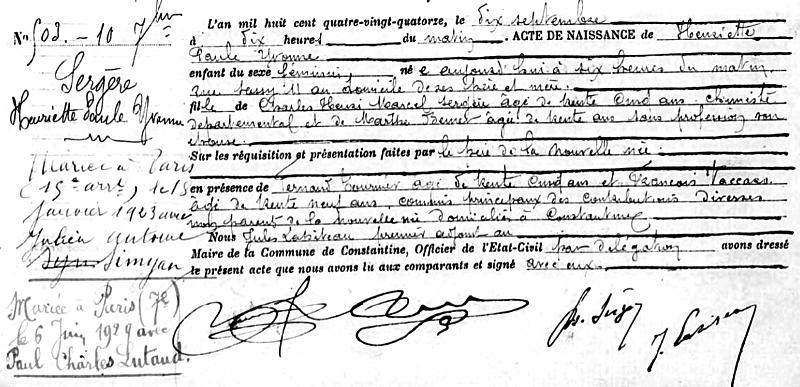 L'an mil huit cent quatre-vingt-quatorze, le dix septembre
à dix heures du matin. ACTE DE NAISSANCE de Henriette
Paule Yvonne
enfant du sexe féminin, née aujourd'hui à six heures du matin
au domicile de ses père et mère.
fille de Charles Henri Marcel Sergère agé de trente cinq ans, chimiste
départemental et de Marthe agée de trente ans sans profession son
épouse.
Sur les réquisition et présentation faites par le père de la nouvelle née.
en présence de Fernand Tournier agé de trente cinq ans et François Vaccass
agé de trente neuf ans, commis principaux des contributions diverses
non parent de la nouvelle née domiciliés à Constantine
Nous Jules premier adjoint au
Maire de la Commune de Constantine, Officier de l'Etat-Civil par délégation avons dressé
le présent acte que nous avons lu aux comparants et signé avec eux.
N° 503. - 10 7bre
Sergère
Henriette Paule Yvonne
Mariée à Paris
(15e arrt), le 15
janvier 1923 avec
Julien Antoine
Simyan
Mariée à Paris (7e)
le 6 Juin 1929 avec
Paul Charles Lutaud.